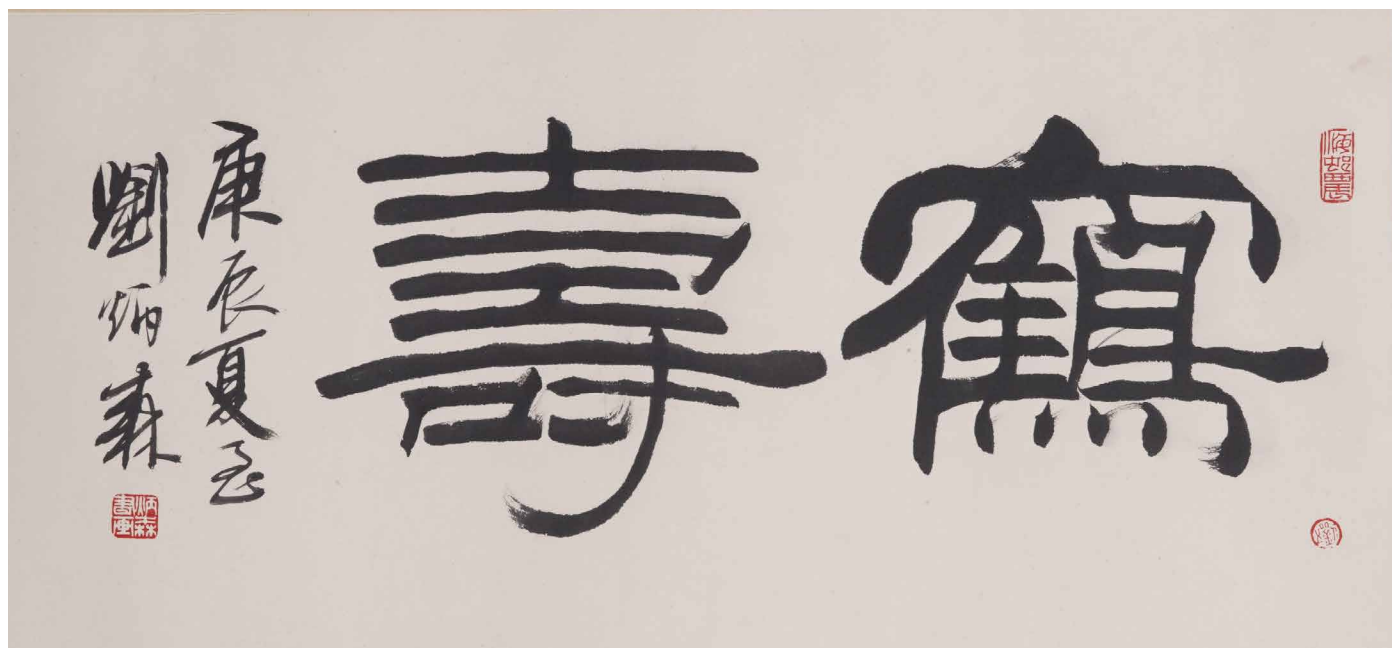 鶴壽
庚辰夏至
劉炳森
炳森
書画